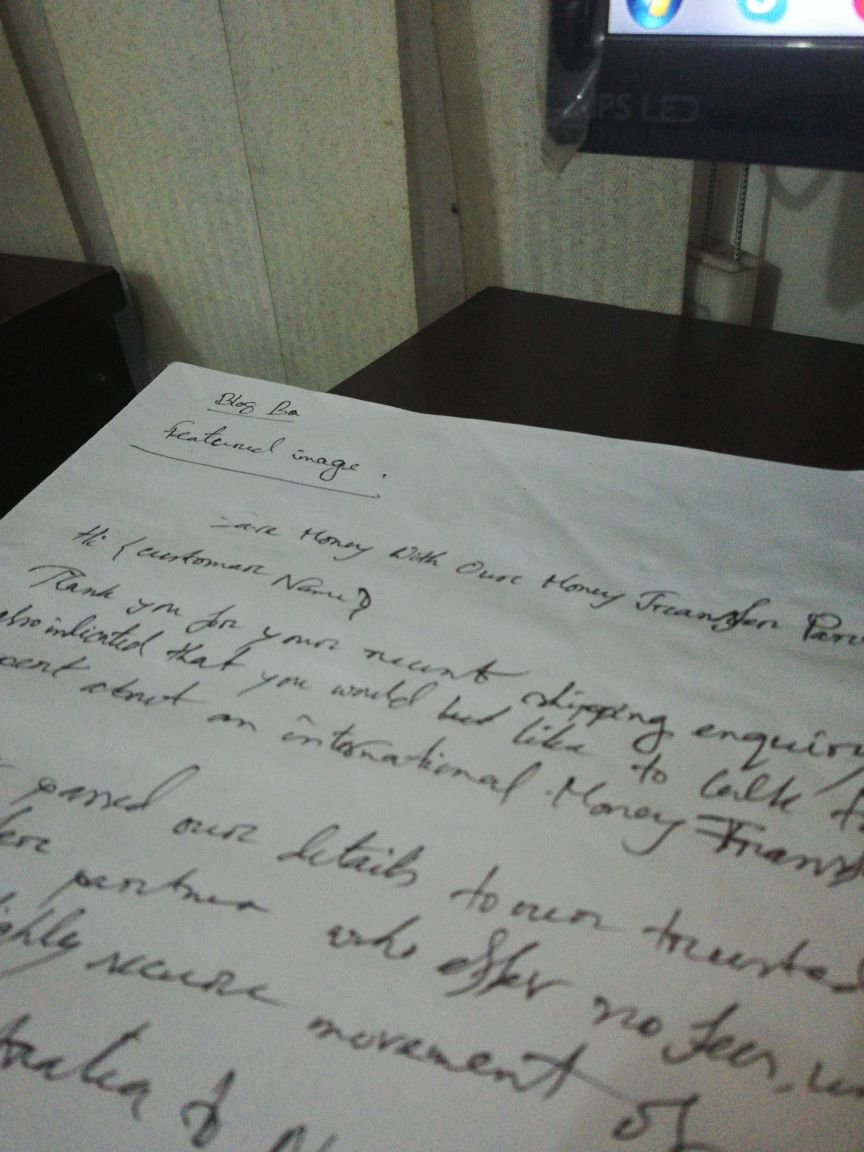 PS LED
Blog Ba
Featured image.
Save Money With Our Money Transfer
Hi {customer Name}
Thank you for your recent shipping enquiry
also indicated that you would but like to talk
about an international Money Trans
passed our details to our trusted
partner who offer no fees,
secure movement of
&